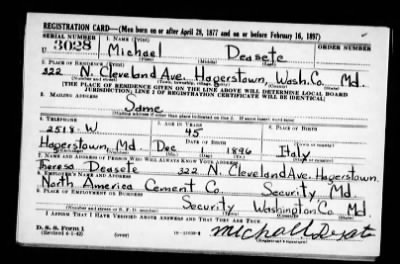 REGISTRATION CARD—(Men born on or after April 28, 1877 and on or before February 16, 1897)
SERIAL NUMBER 1. NAME (Print) ORDER NUMBER
U 3028 Michael Deasete
2. PLACE OF RESIDENCE (Print)
322 N. Cleveland Ave. Hagerstown, Wash. Co. Md.
[THE PLACE OF RESIDENCE GIVEN ON THE LINE ABOVE WILL DETERMINE LOCAL BOARD
JURISDICTION; LINE 2 OF REGISTRATION CERTIFICATE WILL BE IDENTICAL]
3. MAILING ADDRESS
Same
[Mailing address if other than place indicated on line 2. If same insert word same]
4. TELEPHONE 5. AGE IN YEARS 6. PLACE OF BIRTH
2518-W 45
DATE OF BIRTH
Hagerstown, Md. Dec 1896 Italy
7. NAME AND ADDRESS OF PERSON WHO WILL ALWAYS KNOW YOUR ADDRESS
Theresa Deasete 322 N. Cleveland Ave. Hagerstown
8. EMPLOYER'S NAME AND ADDRESS
North America Cement Co. Security Md.
9. PLACE OF EMPLOYMENT OR BUSINESS
Security Washington Co. Md
I AFFIRM THAT I HAVE VERIFIED ABOVE ANSWERS AND THAT THEY ARE TRUE.
D. S. S. Form 1
(Revised 4-1-42) (over)